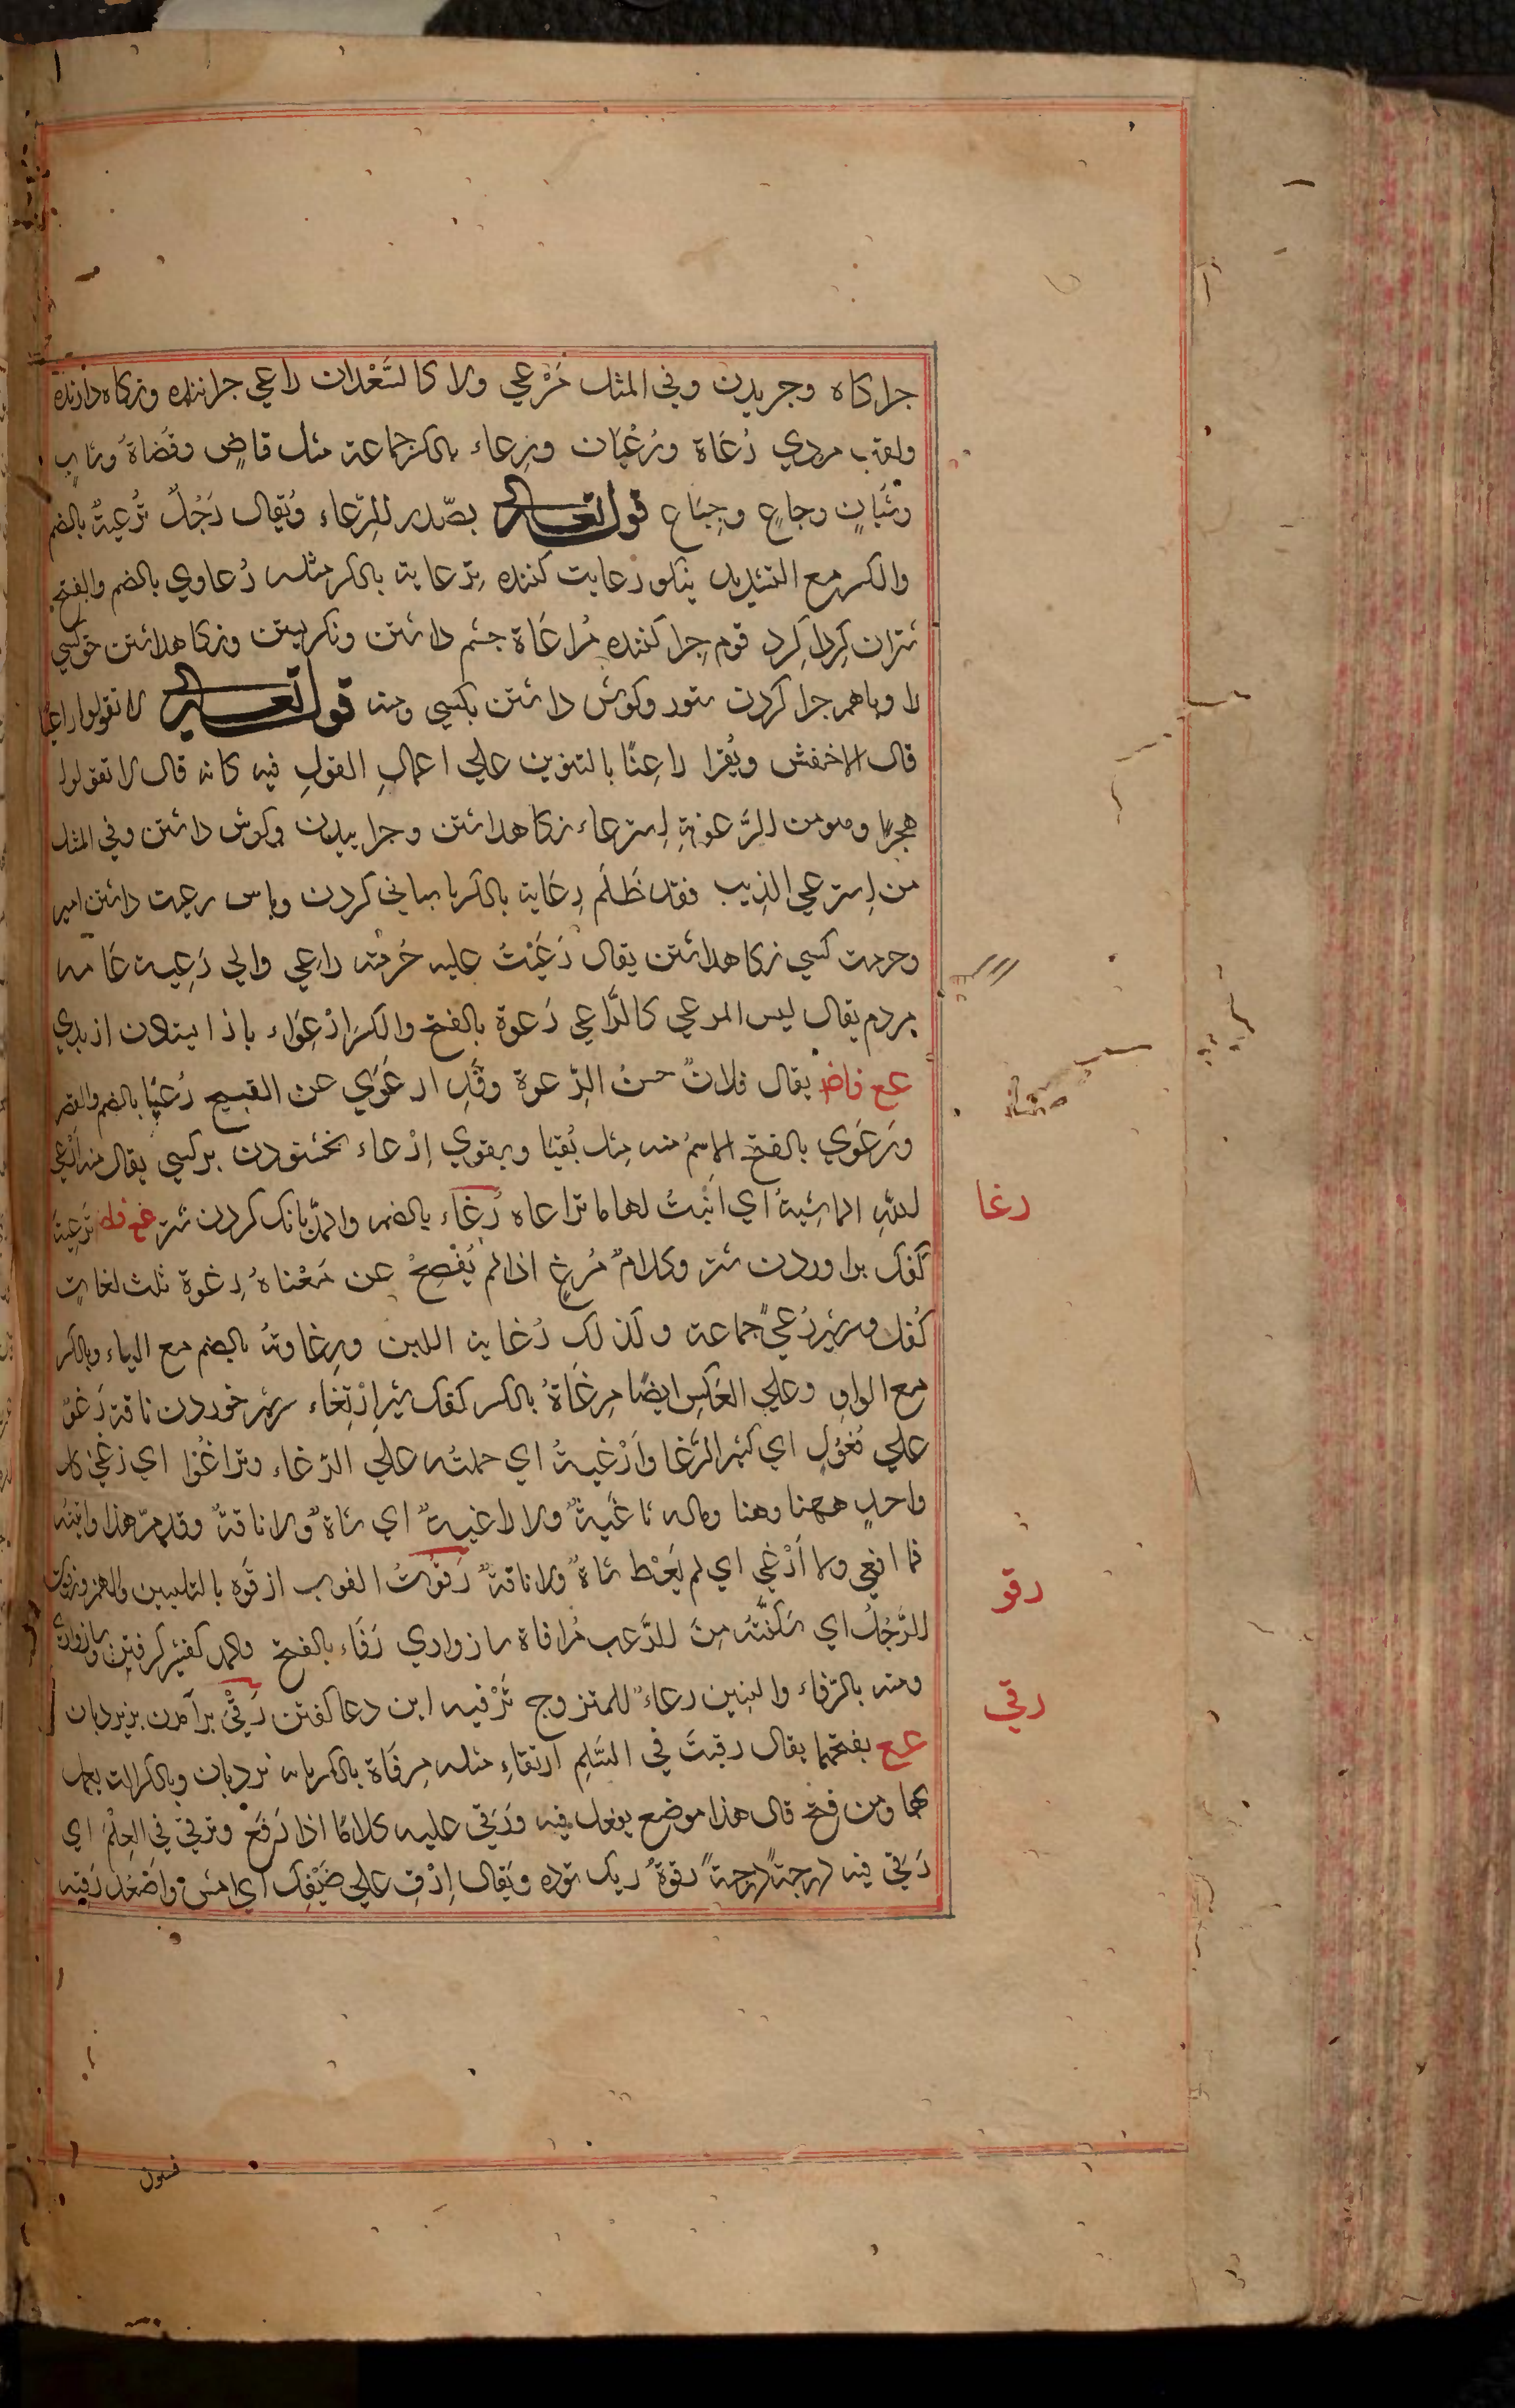 جراكاه وجريدن وفي المثل مَرْعي ولا كالسَّعْدان راعي جراننده ونكاه دارنده
ولقب مردي رُعَاة ورُعْيَان ورِعاء بالكسر جماعة مثل قاضٍ وقُضَاةَ وشابٍ
وشُبَانٍ وجاعٍ وجِيَاع قوله تعالى يصدر الرعاء ويُقال رَجُلٌ تُرْعِيةٌ بالضم
والكسر مع التشديد نيكو رعايت كننده تِرعاية بالكسر مثله رُعاوي بالضم والفتح
شتران كِردا كِرد قوم جِرا كننده مُراعَاة چشم داشتن ونكريستن ونكاهداشتن حق كسي
را وباهم جرا كردن ستور وكوش داشتن بكسي ومنه قوله تعالى لا تقولوا راعنا
قال الاخفش ويُقرا راعِنًا بالتنوين على اعمالِ القولِ فيه كانه قال لا تقولوا
هجرا وهو من الرُّعونةِ استرعاء نكاهداشتن وجرانيدن وكوش داشتن وفي المثل
من استرعي الذيب فقد ظَلَم رِعَاية بالكسر پاسباني كردن وپاس رعيت داشتن امير
وحرمت كسي نكاهداشتن يقال رَعَيْتُ عليه حُرمته راعِي والي رَعِية عَامه
مردم يقال ليس المرعي كالرَّاعي رَعوة بالفتح والكسر ارْعِوَاء باز ايستادن از بدي
ع ع فاض يقال فلانٌ حسنُ الرِّعوة وقَدِ ارعَوَي عن القبيح رُعيَا بالضم والقصر
ورَعَوي بالفتح الاسمُ منه مثل بُقيَا وبقوي اِرْعاء بخشودن بركسي يقال منه ارعي
لله الماشيةُ اي اَنْبَتَ لها ما ترعاه رُغَاء بالضم والمدّ بانك كردن شتر ع ع فاض ترغية
كفك براوردن شتر وكلامٌ مُرغٍ اذا لم يُفْصِحْ عن مَعْناهُ رغوة ثلث لغاتٍ
كفك وسرشير رُغيً جماعة وكذلك رُغاية اللبن ورِغاوتهُ بالضم مع الياء وبالكسر
مع الواوِ وعلي العَكسِ ايضًا مِرغَاةُ بالكسر كفك شير اِرْتِغَاء سرشير خوردن ناقة رَغوٌ
علي فَعُولٍ اي كثير الرُّغا وَاَرْغيتهُ اي حملتُه علي الرّغاء وتراغَوْا اي رَغَي كل
واحدٍ ههنا وهنا وماله ثاغيةٌ ولا راغيةٌ اي شاةٌ ولا ناقةٌ وقد مرّ هذا واتيته
فما اثغي ولا اَرْغَي اي لم يَعْط شاةً ولا ناقةً رَفَوْتُ الثوب ارفوه بالتليين والهمز ورفوت
الرَّجُلَ اي سَكَّنْتُه مِنَ الرَّعب مُرافاة سازواري رَفَاء بالفتح والمد كفشير كرفتن وسازواري
ومنه بالرّفاء والبنين دعاءٌ للمتزوج تَرْفيه اين دعا كفتن رَقْيٌ برآمدن بر نردبان
ع ع بفتحهما يقال رقيتَ في السُّلمِ ارتقاءِ مثله مِرقَاة بالكسر پايه نردبان وبالكسر الت يعمل
بها ومن فتح قال هذا موضع يفعل فيه وَرَقي عليه كلامًا اذا رَفَعَ وترقي في العِلْمِ اي
رَقي فيه درجةً درجةً رقوةٌ ريك توده ويقال اِرْقِ علي ضَيْفِك اي امشِ واصْعَدْ رَقيه
رغا
رفو
رقي
فسون